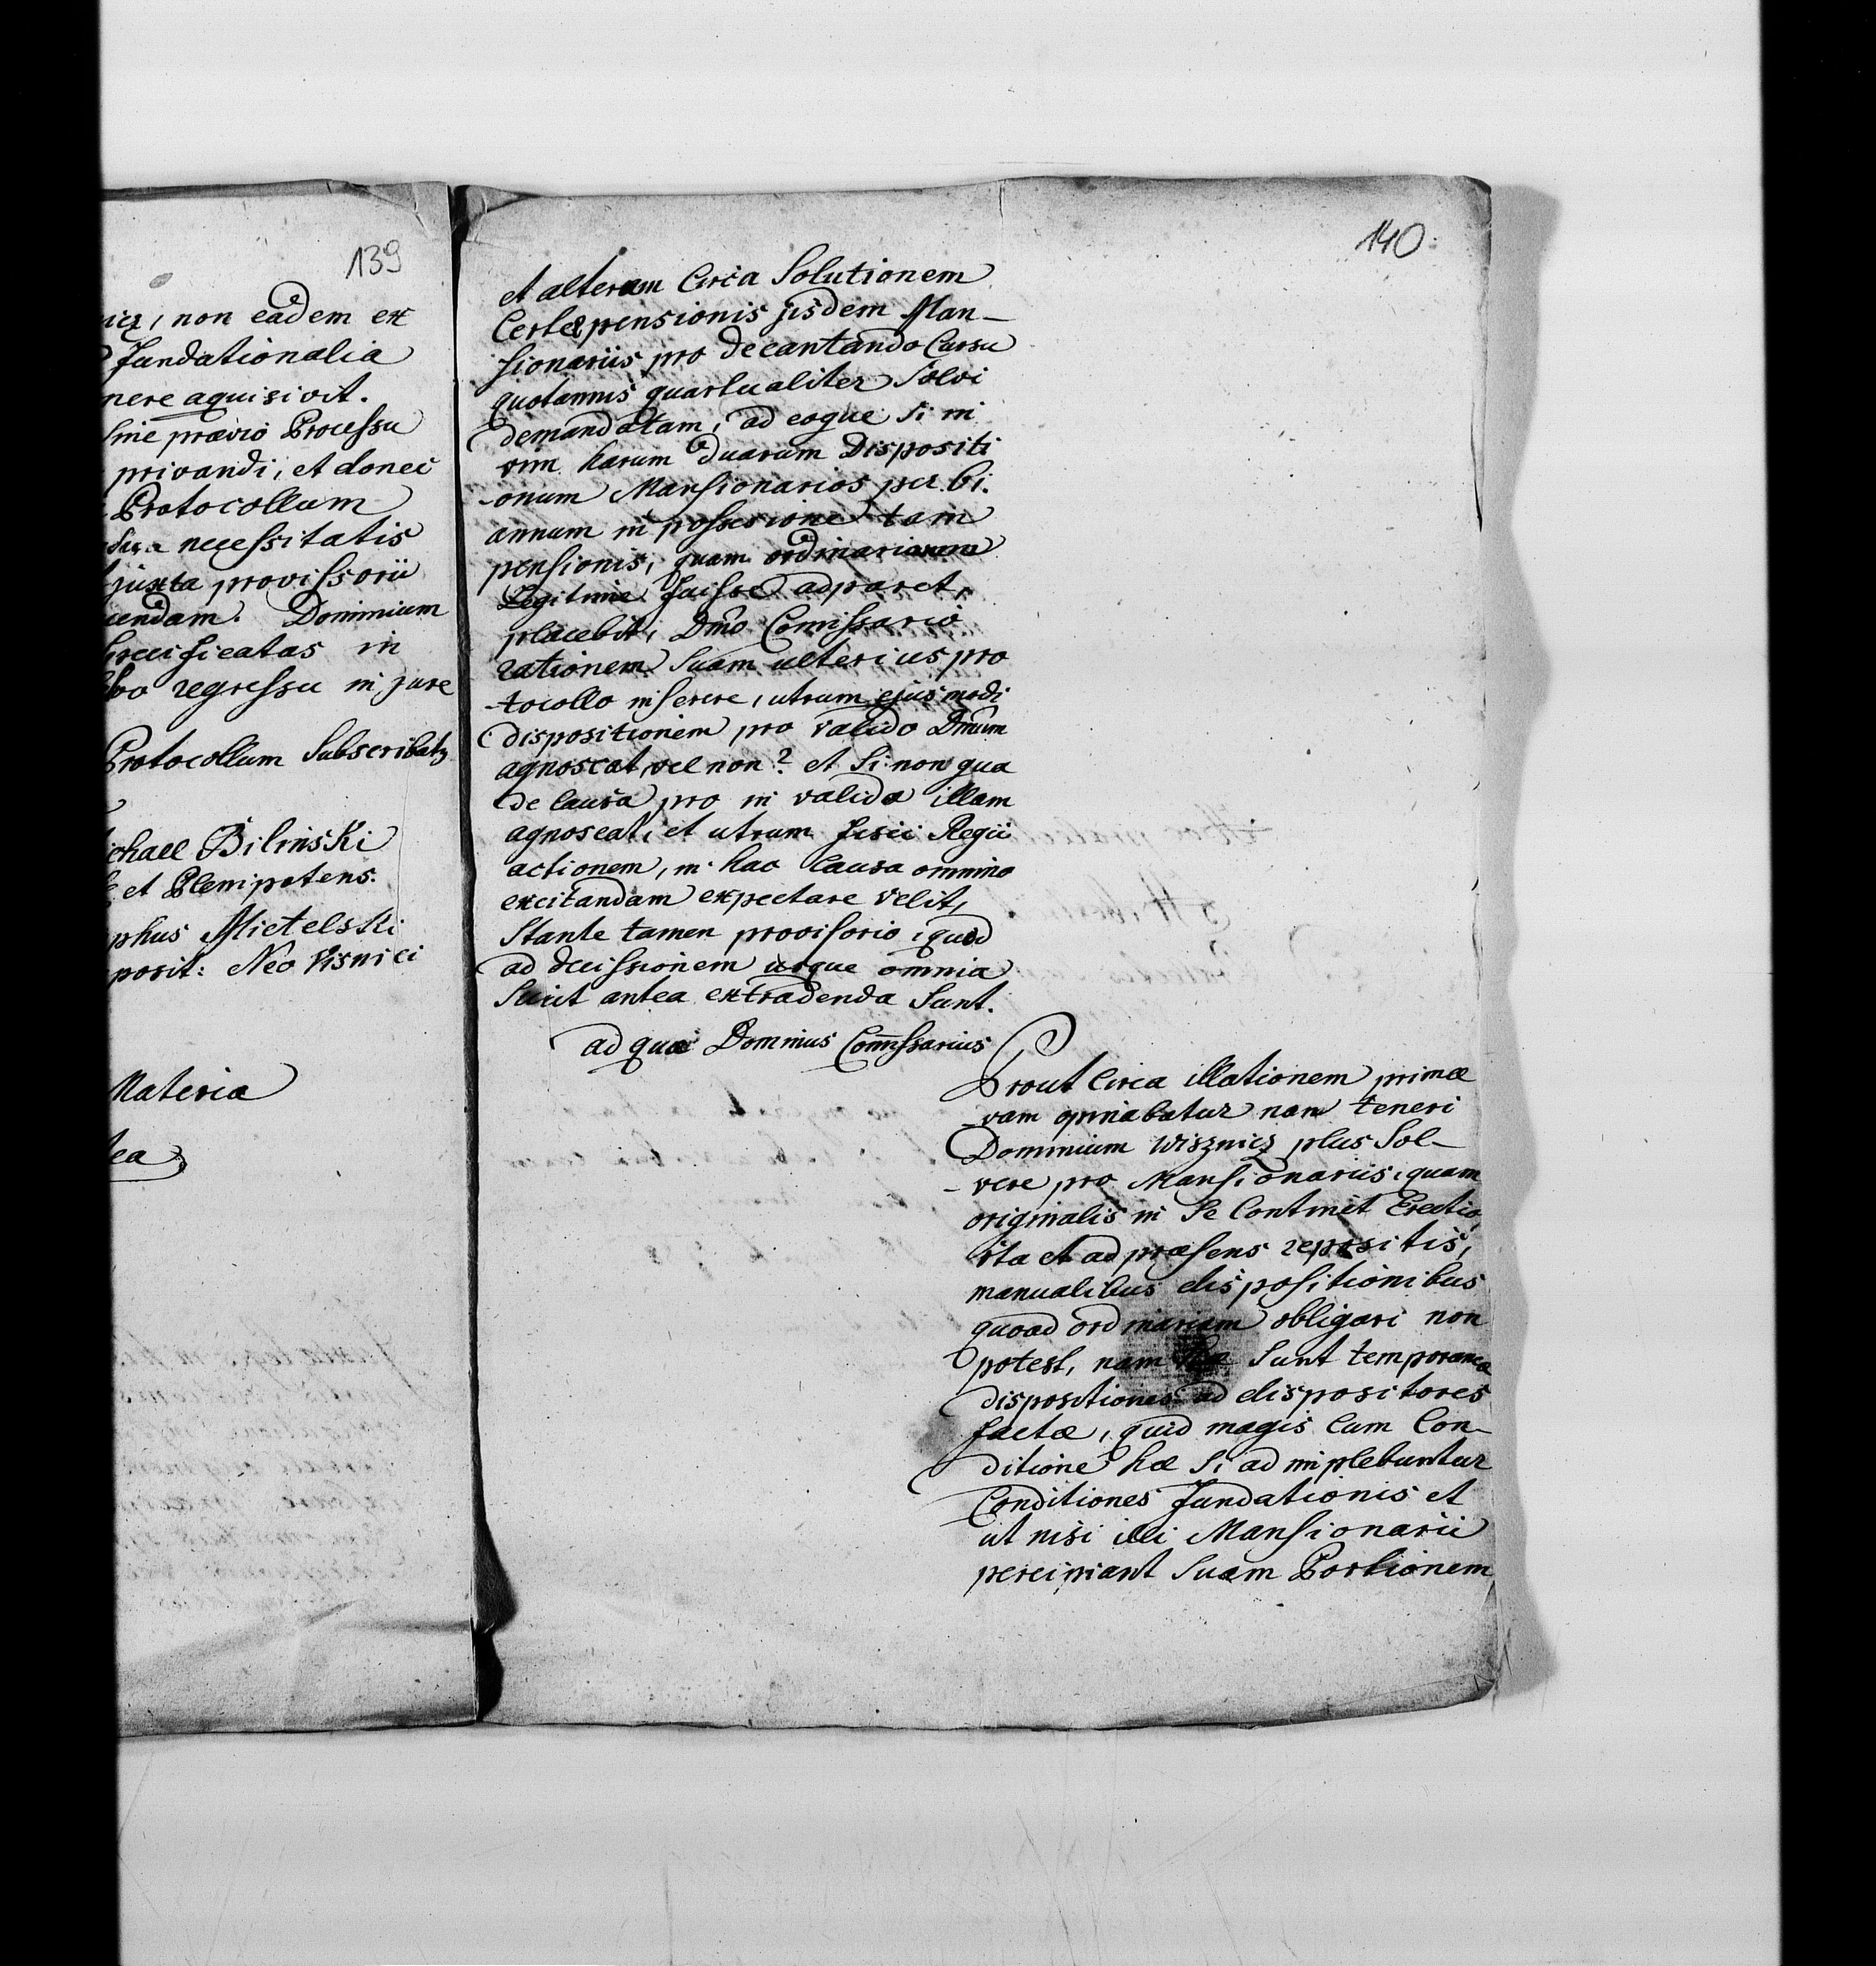 139
non eadem ex
fundationalia
nere aquisivit.
sine prævio Processu
privandi, et donec
Protocollum
necessitatis
juxta provissorii
Dominium
in
regressu in jure
Protocollum Subscribatz
chael Bilinski
et Plenipotens.
phus Mietelski
posit: Neo Visnici
Materia
ea
140.
et alteram Circa Solutionem
Certæ pensionis jisdem Man-
sionariis pro decantando Cursu
quotannis quartualiter Solvi
demandatam, ad eoque Si in
vim harum duarum Dispositi
-onum Mansionarios per bi.
annum in possesione tam
pensionis, quam ordinariarum
Legitime fuisse adparet,
placebit, Dnō Comissario
rationem Suam ulterius pro
-tocollo inserere, utrum ejus modi
dispositionem pro valido Dnium
agnoscat, vel non? et Si non qua
de Causa pro in valida illam
agnoscat, et utrum fisci Regii
actionem, in hac Causa omnino
excitandam expectare velit,
Stante tamen provisorio, quod
ad decissionem usque omnia
Sicut antea extradenda Sunt.
ad quæ Dominus Comissarius
Prout Circa illationem primæ
vam opinabatur non teneri
Dominium Wisznicz plus Sol-
-vere pro Mansionariis, quam
originalis in Se Continet Erectio,
ita et ad præsens repositis,
manualibus dispositionibus
quoad ordinariam obligari non
potest, nam Sunt temporanea
dispositiones ad dispositores
factæ, quid magis Cum Con-
ditione hæ Si ad implebuntur
Conditiones fundationis et
ut nisi illi Mansionarii
percipiant Suam Portionem